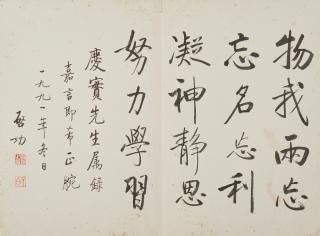 物我兩忘
忘名忘利
凝神靜思
努力學習
慶寶先生属錄
嘉言即希正腕
一九九一年冬日
啟功